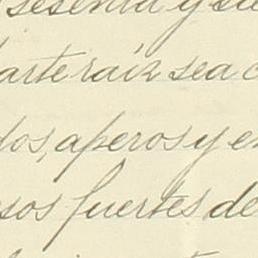 sesenta y si
parte raíz sea c
dos, aperos y e
sos fuertes de